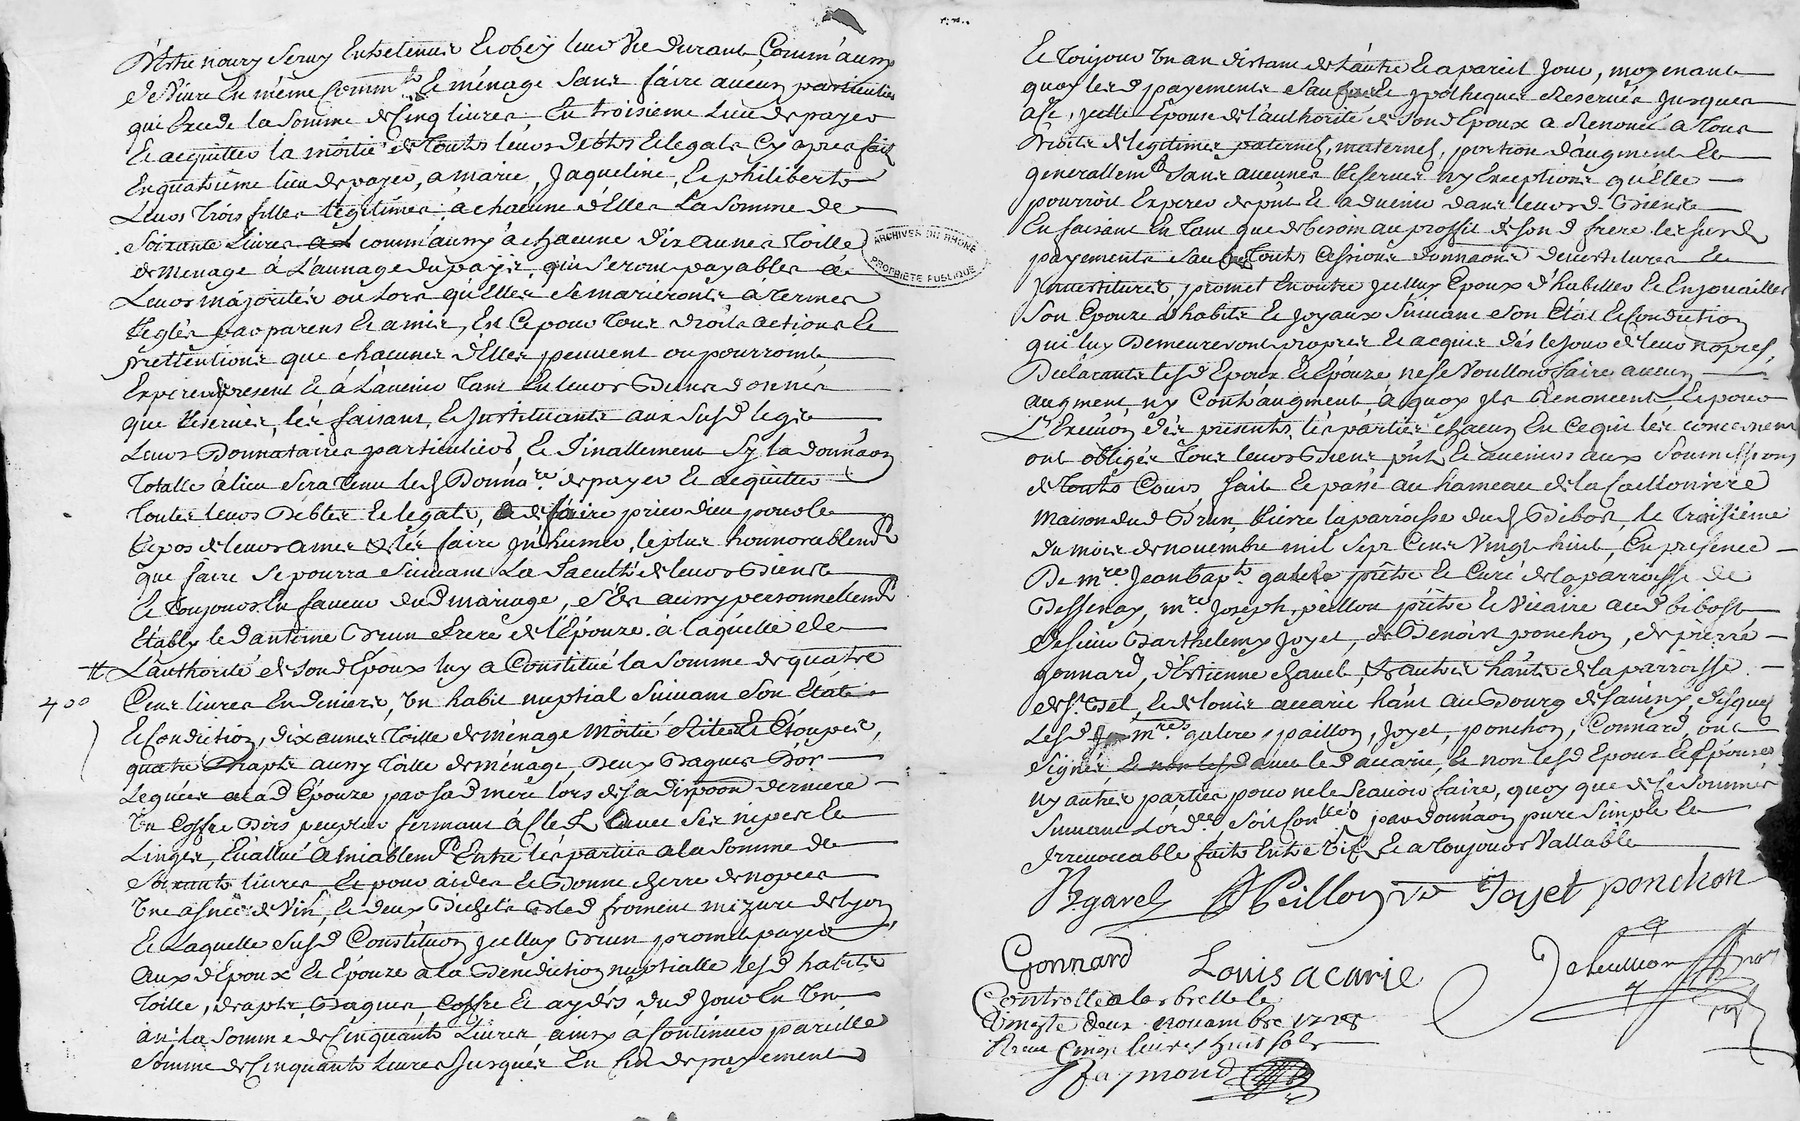 d'Estre noury servy Entretenus Et obey leur vie durant, Comm'aussy
de vivre En même Comm.te Et ménage sans faire aucun particulier
qui Excede la somme de Cinq livres, En troisieme lieu de payer
Et acquitter la moitié de Touts leurs debts Et legats Cy apres fait
En quatrieme lieu de payer, a marie, Jaqueline, Et philiberte
Leurs Trois filles legitimes, à chacune d'Elles La somme de
soixante livres comm'aussy à chacune dix aunes Toille
de menage à L'aunage du pays, qui seront payables à
Leurs majorités ou lors qu'Elles se marieronts à termes
Reglés par parens Et amis, Et Ce pour Tous droits actions Et
prettentions que chacunes d'Elles peuvent ou pourronts
Esperer present Et à L'avenir Tant En leurs Biens donnés
que Reservés, les faisant, Et Justituants aux susd legs
Leurs Donnataires particuliers, Et finallement sy la donnaon
Totalle à lieu sera Tenu led Donna.re de payer Et acquitter
Toutes leurs Debtes Et legats, de faire prier dieu pour le
Repos de leurs ames Et les faire Jnhumer, le plus honnorablem.t
que faire se pourra suivant La faculté de leurs Biens
Et Toujours En faveur dud mariage, s'Est aussy personnellem.t
Etably led antoine Brun frere de l'Epouze à laquelle de
L'authorité de sond Epoux luy a Constitué la somme de quatre
400
Cens livres En deniers, Un habit nuptial suivant son Etat
Et Condiction, dix aunes Toille de ménage moitié Rite Et Etoupes,
quatre Draps aussy Toille de ménage, Deux Bagues D'or
Leguées a lad Epouze par sad mere lors de sa dispoon derniere
Un Coffre Bois peuplier fermant à Clef, avec ses nipes Et
Linges, Evallué amiablem.t Entre les parties a la somme de
soixante livres Et pour aides Et Bonne cherre de nopces
Une asnée de Vin, Et deux Bichets Bled froment mezure de Lyon
Et Laquelle susd Constituon Jcelluy Brun promet payer
Aux d Epoux Et Epouze a la Benediction nuptialle lesd habits
Toille, draps, Bagues, Coffre Et aydes, dud Jour En Un
an, la somme de Cinquante Livres ainsy à Continuer pareille
somme de Cinquante livres Jusques En fin de payement
ARCHIVES DU RHÔNE
PROPRIÉTÉ PUBLIQUE
Et Toujour Un an distant de L'autre Et a pareil Jour, moyenant
quoy lesd payements sauf Et ypotheques Reservés Jusques
a Ce, Jcelle Epouse de l'authorité de sond Epoux a Renoncé a Tous
Droits de legitimes paternel, maternel, portion d'augment Et
generallem.t sans aucunes Reserves ny Exceptions qu'Elle
pourroit Esperer de p.nt Et a l'advenir dans leursd Biens
En faisant En Tant que de besoin au proffit de sond frere les susd
payements sauf Touts Cessions donnaons devestitures Et
Jnvestitures, promet En outre Jcelluy Epoux d'habiller Et Enjouailler
son Epouze d'habits Et Joyaux suivant son Etat Et Condiction
qui luy Demeureronts propres Et acquis dès le jour de leurs nopces,
Déclarants lesd Epoux Et Epouze ne se Voulloir faire aucun
augment, ny Contr'augment, à quoy Jls Renoncent, Et pour
L'Execuon des presents, les parties chacun En Ce qui les concernent
ont obligés Tous leurs Biens p.nts Et avenirs aux soumissions
de Touts Cours, fait Et passé au hameau de la Caillonniere
Maison dud Brun, Riere la parroisse dud Bibost, le Troisième
du mois de novembre mil sept Cens Vingt huit, En presence
De m.re Jean Bap.te prêtre Et Curé de la parroisse de
Bessenay, m.re Joseph peillon prêtre Et Vicaire aud bibost
de sieur Barthelemy Joyet, de Benoist ponchon, de pierre
gonnard, d'Estienne chavet, Et autres hants de la parroisse
de St Bel, Et de Louis accarie hânt Au Bourg de savigny, desquels
Lesd m.res peillon, Joyet, ponchon, Gonnard, ont
signés avec led accarie, Et non lesd Epoux Et Epouze
ny autres parties pour ne le scavoir faire, quoy que de Ce sommés
suivant L'ord.ce, soit Con.llé par donnaon pure simple Et
Jrrevoccable faite Entre Vifs Et a Toujours Vallable
Peillon Joyet ponchon
Gonnard Louis acarie
Controllé a Larbrelle le
Vingte deux nouambre 1728
Receu Cinqe liures huit sols
Raymond